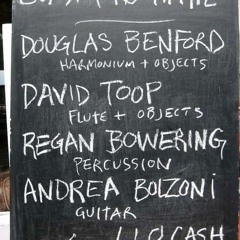 DOUGLAS BENFORD
HARMONIUM + OBJECTS
DAVID TOOP
FLUTE + OBJECTS
REGAN BOWERING
PERCUSSION
ANDREA BOLZONI
GUITAR
CASH